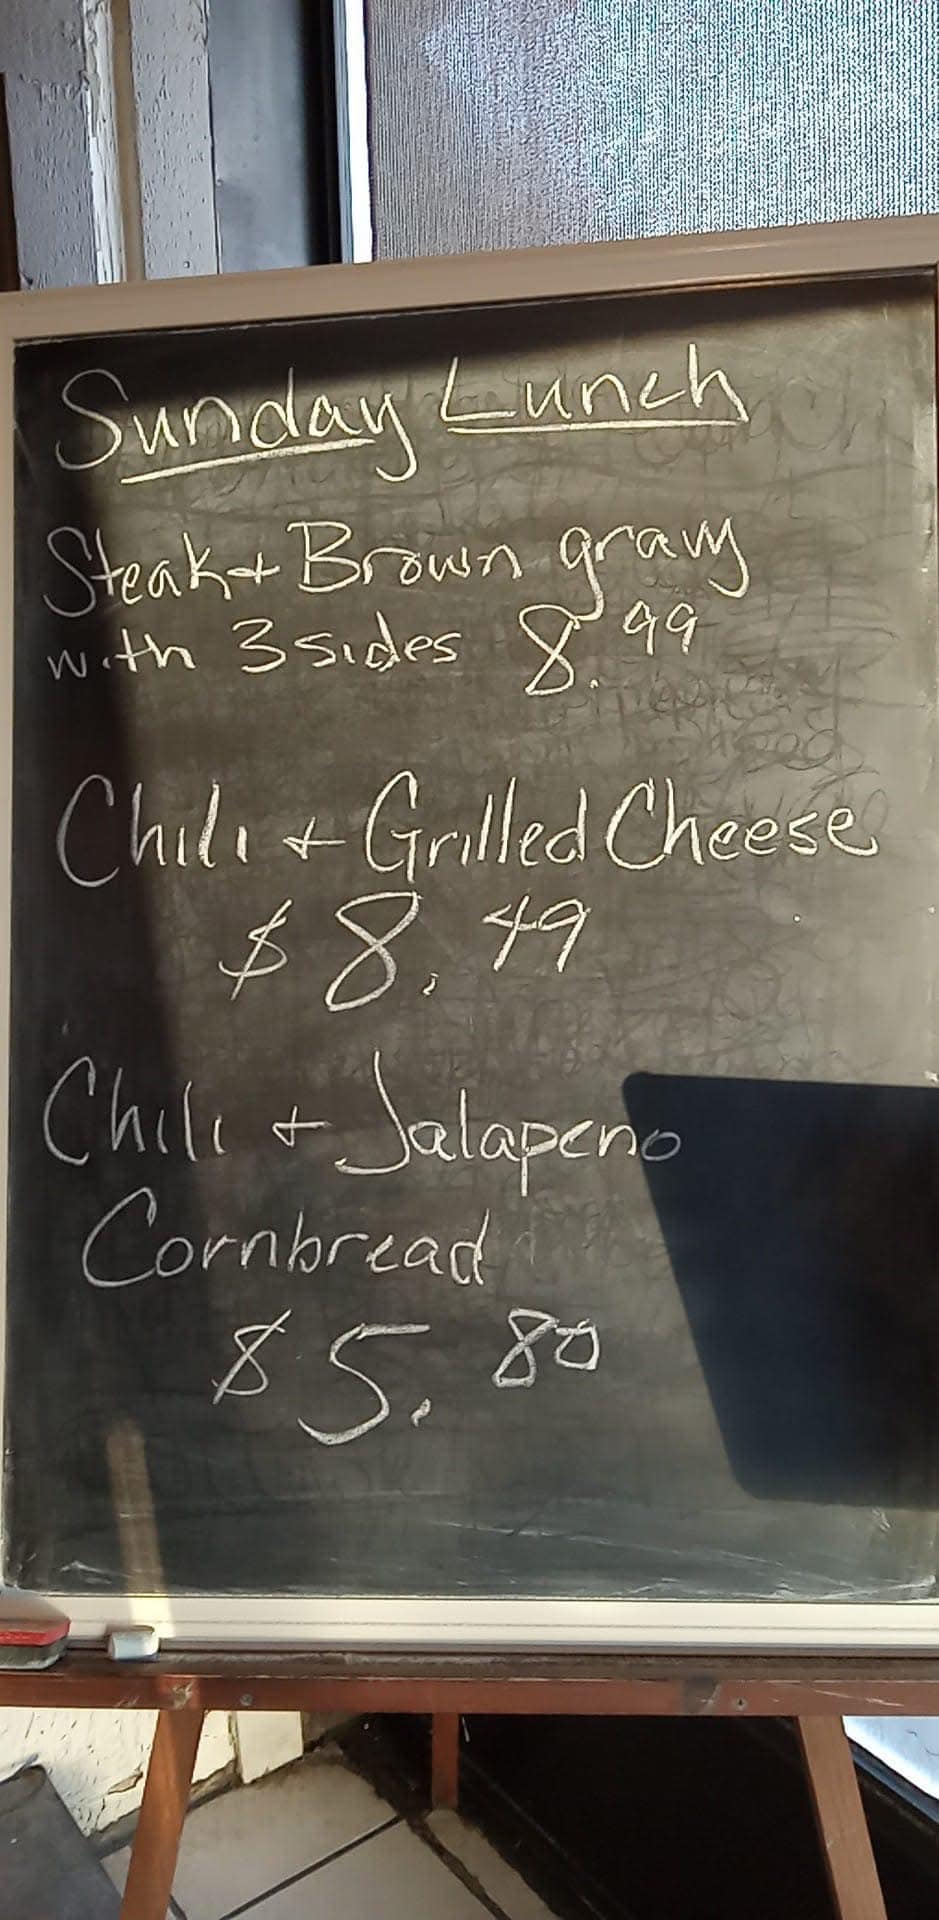 Sunday Lunch
Steak + Brown gravy
with 3 sides 8.99
Chili + Grilled Cheese
$8.49
Chili + Jalapeno
Cornbread
$5.80